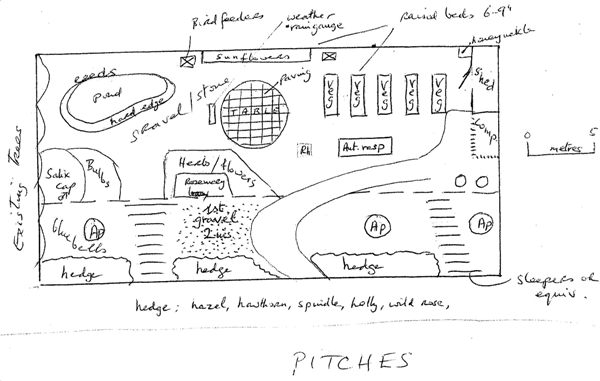 Bird feeders
weather
+ raingauge
raised beds 6-9"
honeysuckle
sunflowers
shed
reeds
Pond
hard edge
gravel/stone
paving
TABLE
VEG
VEG
VEG
VEG
VEG
Rh
Aut. rasp
comp.
0 5
metres
Existing trees
Salix
cap
Bulbs
Herbs/flowers
Rosemary
bluebells
Ap
1st
gravel
Ap
Ap
hedge
hedge
hedge
sleepers or
equiv.
hedge: hazel, hawthorn, spindle, holly, wild rose,
PITCHES